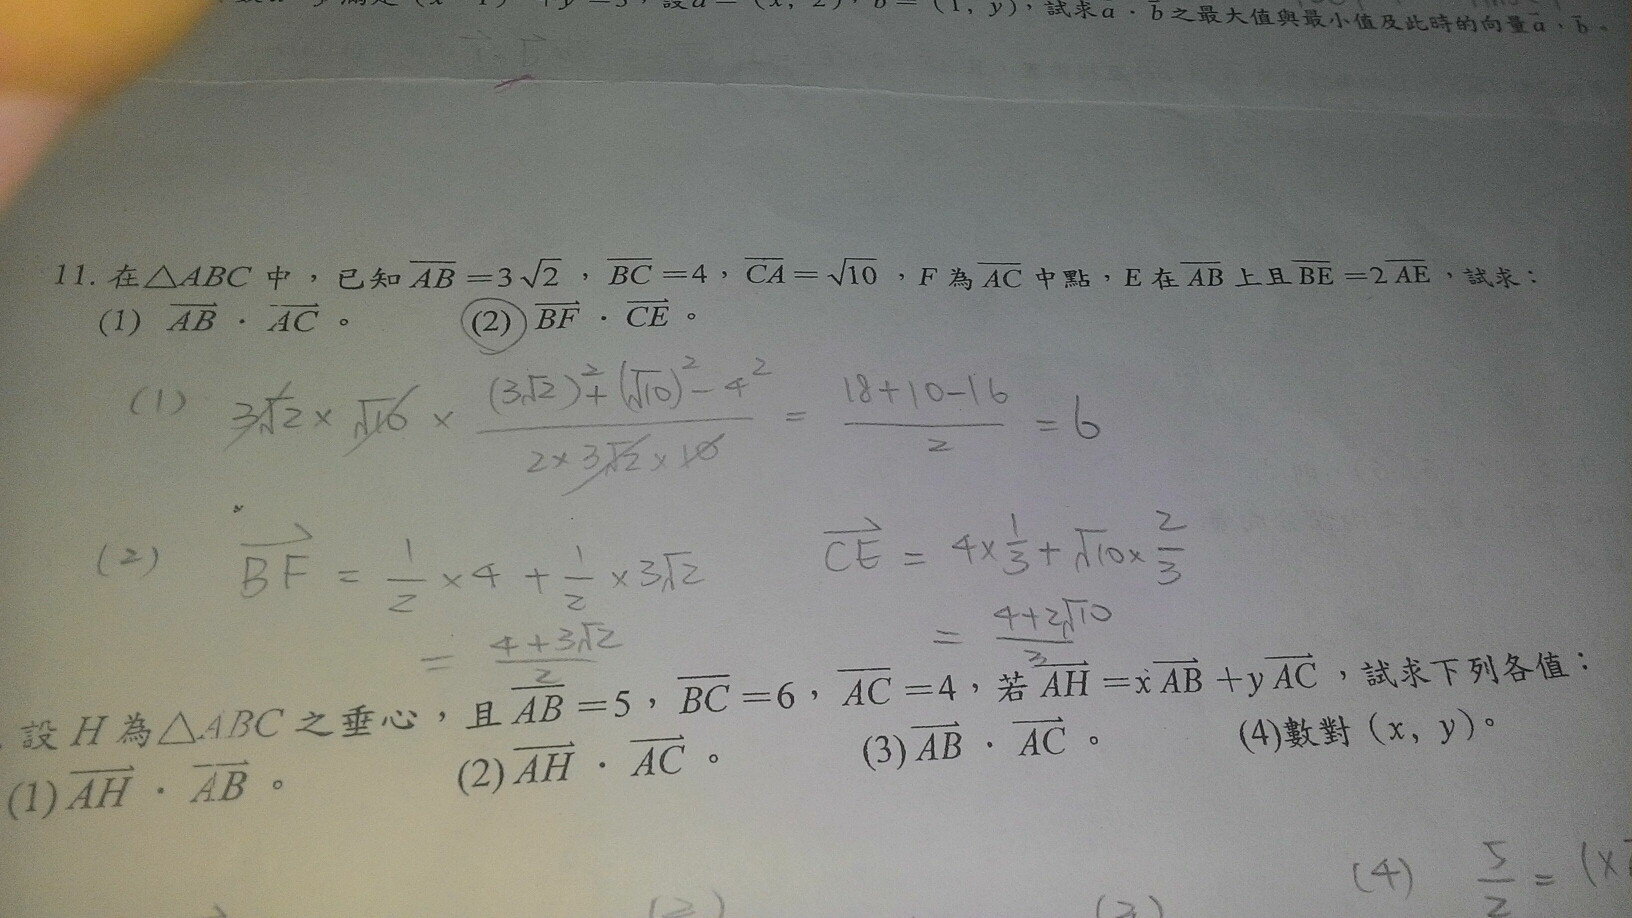 滿足 (x-1)²+y²=5，設a=(x, 2)，b=(1, y)，試求a·b之最大值與最小值及此時的向量a、b。
11. 在△ABC 中，已知AB=3√2，BC=4，CA=√10，F 為 AC 中點，E 在AB上且BE=2AE，試求：
(1) AB · AC。 (2) BF · CE。
(1) 3√2 × √10 × ((3√2)²+(√10)²-4²)/(2×3√2×10) = (18+10-16)/2 = 6
(2) BF = 1/2 ×4 + 1/2 ×3√2 CE = 4×1/3 + √10×2/3
= (4+3√2)/2 = (4+2√10)/3
設 H 為△ABC 之垂心，且 AB=5，BC=6，AC=4，若AH=xAB+yAC，試求下列各值：
(1)AH · AB。 (2)AH · AC。 (3)AB · AC。 (4)數對 (x, y)。
(4) 5/2 = (x
(2) (3)